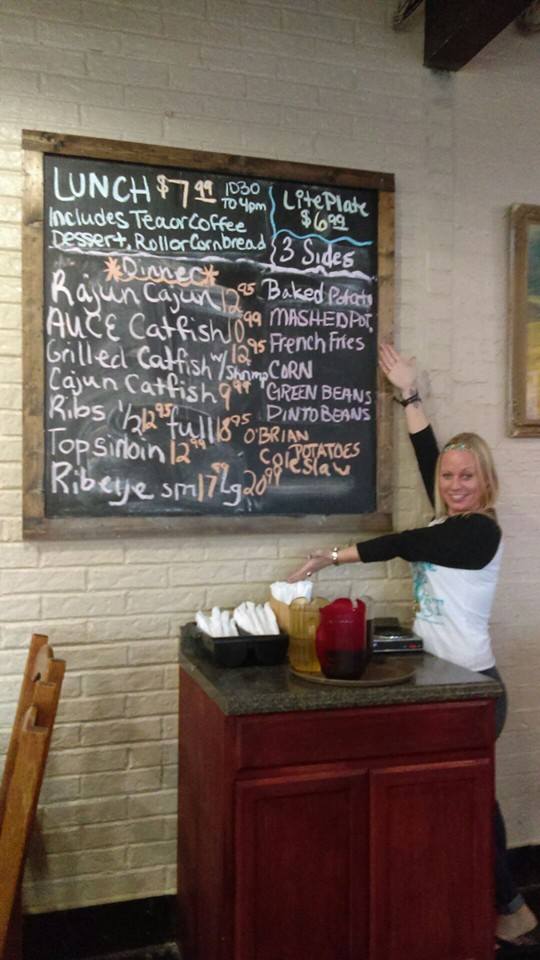 LUNCH $7.99 1030 TO 4pm
Includes Tea or Coffee
Dessert, Roll or Cornbread
Lite Plate
$6.99
3 Sides
*Dinner*
Rajun Cajun 12.95
AUCE Catfish 10.99
Grilled Catfish w/ Shrimp 12.95
Cajun Catfish 9.99
Ribs 1/2 12.95 full 18.95
Top sirloin 12.99
Ribeye sm 17.99 Lg 20.99
Baked Potato
MASHED POT.
French Fries
CORN
GREEN BEANS
PINTO BEANS
O'BRIAN
POTATOES
Coleslaw